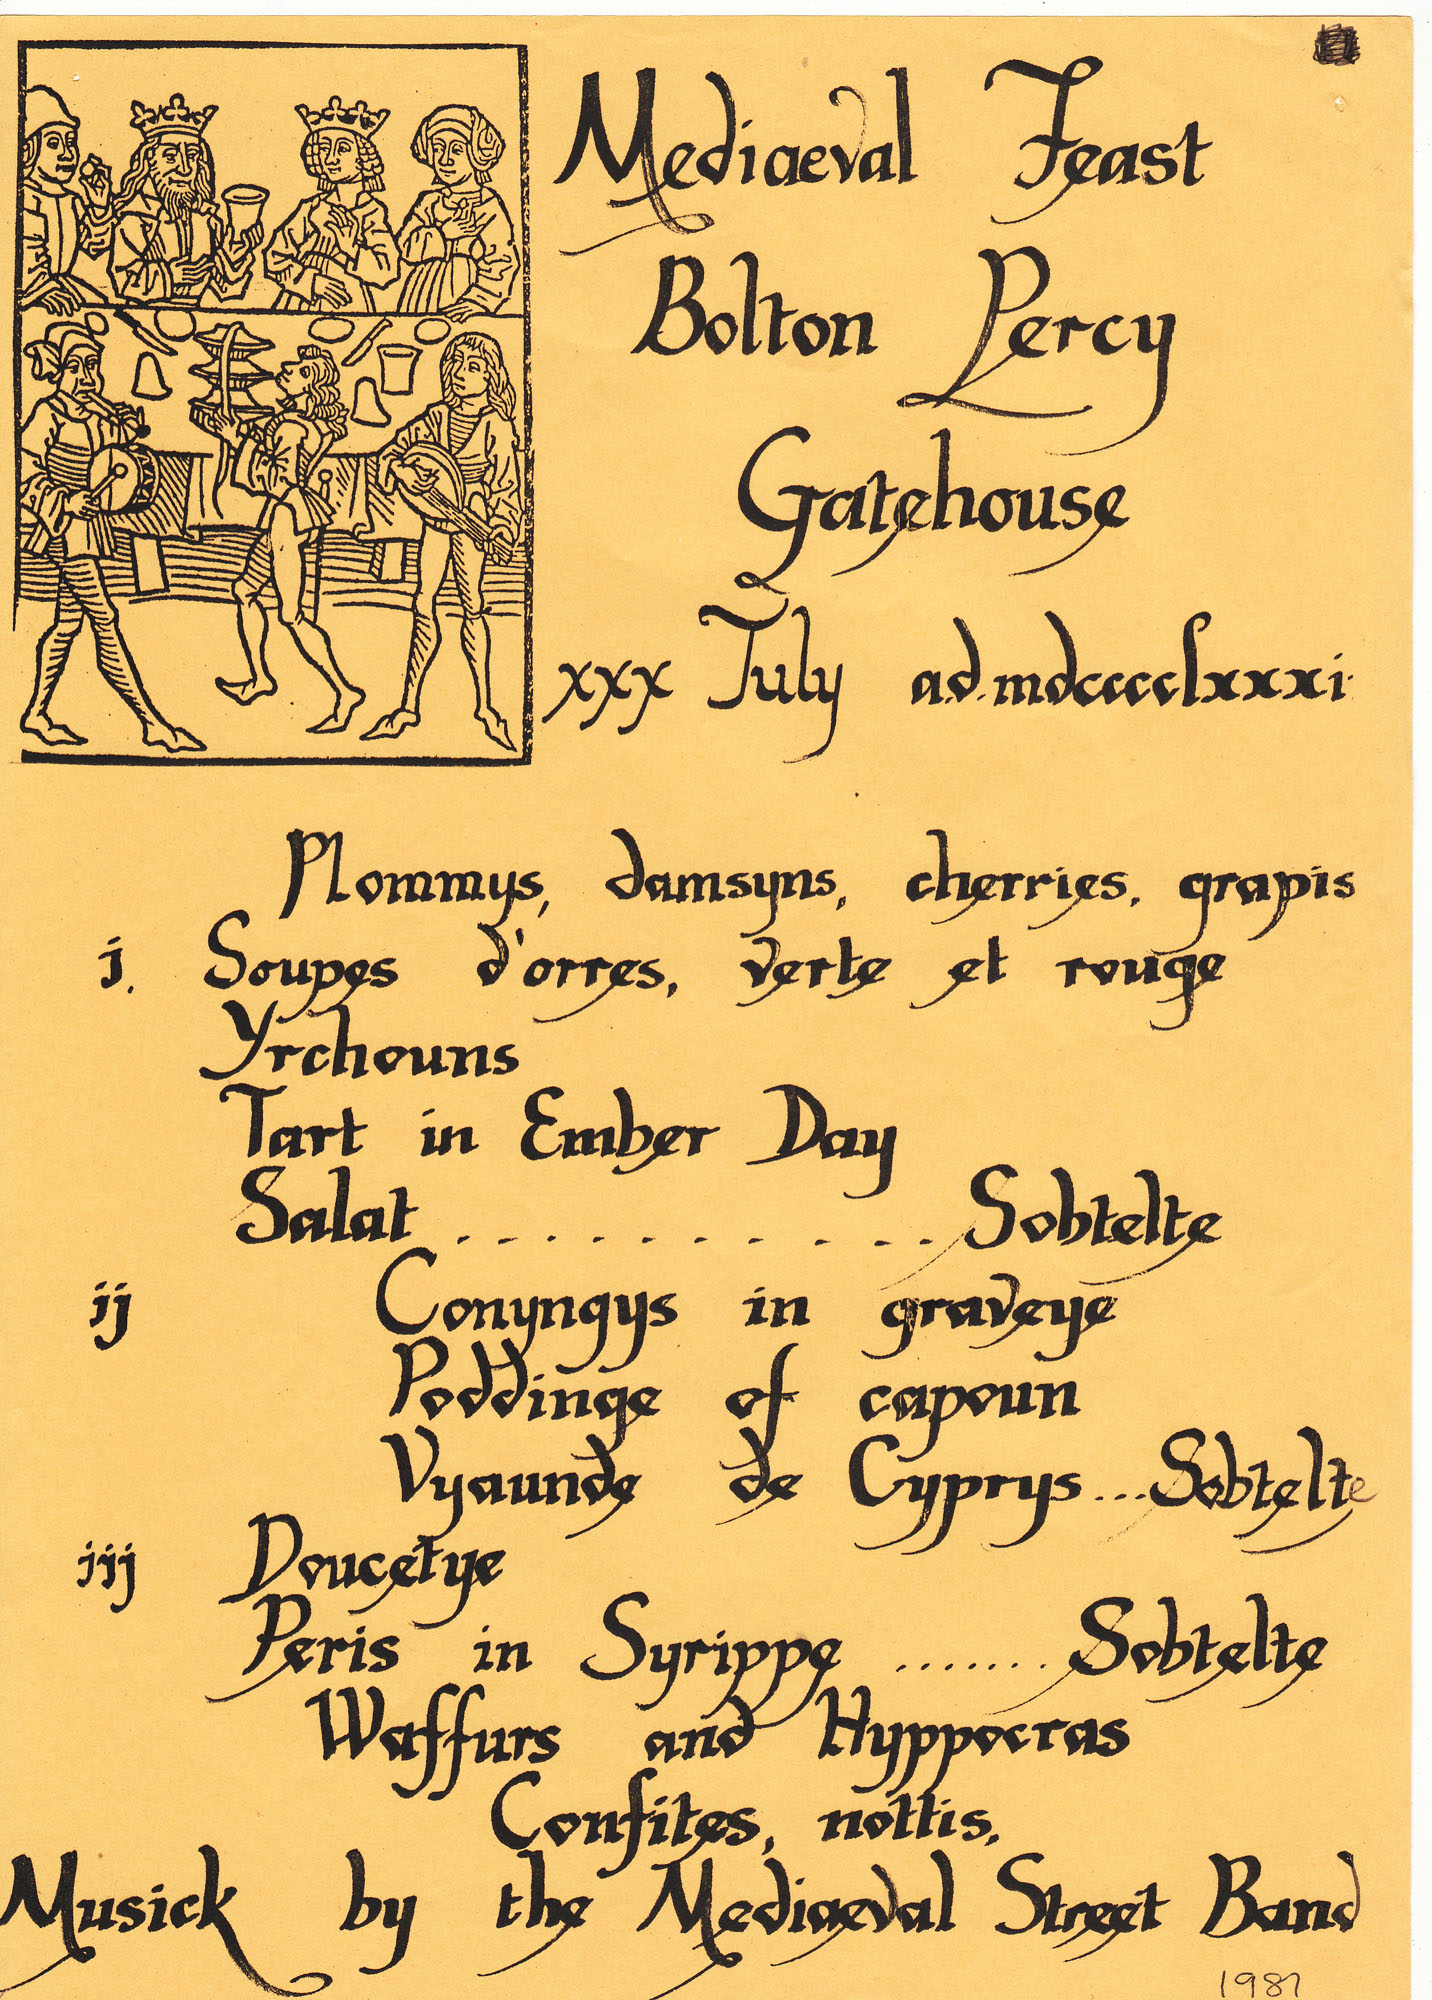 Mediaeval Feast
Bolton Percy
Gatehouse
xxx July a.d. mdcccclxxxi.
Plommys, damsyns, cherries, grapis
j. Soupes d'orres, verte et rouge
Yrchouns
Tart in Ember Day
Salat . . . . . . . . . . . Sobtelte
ij Conyngys in graveye
Poddinge of capoun
Vyaunde de Cyprys ... Sobtelte
iij Doucetye
Peris in Syrippe ....... Sobtelte
Waffurs and Hyppocras
Confites, nottis,
Musick by the Mediaeval Street Band
1981